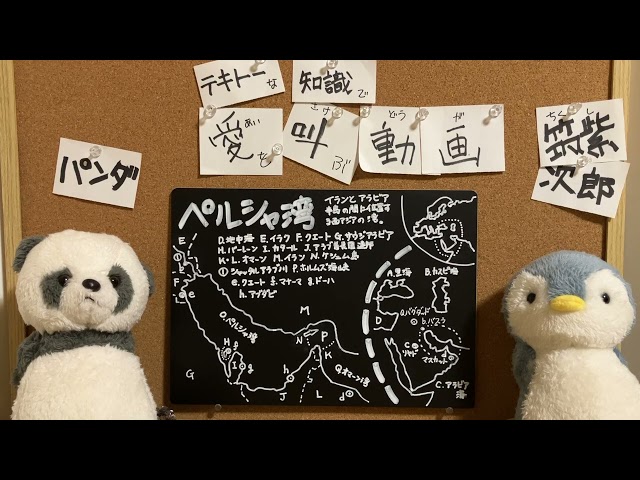 テキトーな
知識で
愛を
あい
叫ぶ
さけ
動画
どう が
パンダ
筑紫
ちくし
次郎
ペルシャ湾
イランとアラビア
半島の間に位置する
D.地中海 E.イラク F.クエート G.サウジアラビア
H.バーレーン I.カタール J.アラブ首長国連邦
K・L.オマーン M.イラン N.ゲシュム島
①シャットルアラブ川 P.ホルムズ海峡
e.クエート f.マナーマ g.ドーハ
h.アブダビ
A.黒海
B.カスピ海
a.バグダード
b.バスラ
D
E
F
e
M
O.ペルシャ湾
N
P
H
f
I
g
K
G
h
J
L
Q.オマーン湾
d
マスカット
C.アラビア
海